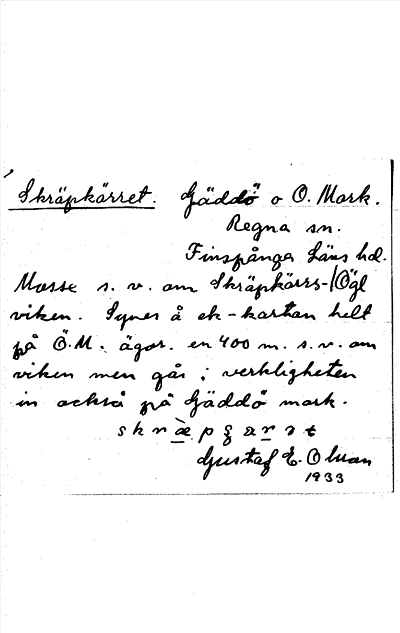 Skräpkärret. Gäddö o Ö. Mark.
Regna sn.
Finspånga Läns hd.
Mosse s. v. om Skräpkärrs-/Ögl
viken. Synes å ek-kartan helt
på Ö.M. ägor. en 400 m. s.v. om
viken men går i verkligheten
in också på Gäddö mark.
Gustaf E. Olsson
1933